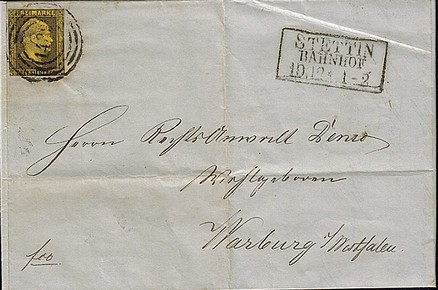 FREIMARKE
STETTIN
BAHNHOF
10 12 * 1-2
Herrn Rechts-Anwalt
Wohlgeboren
Warburg i/Westfalen.
fro